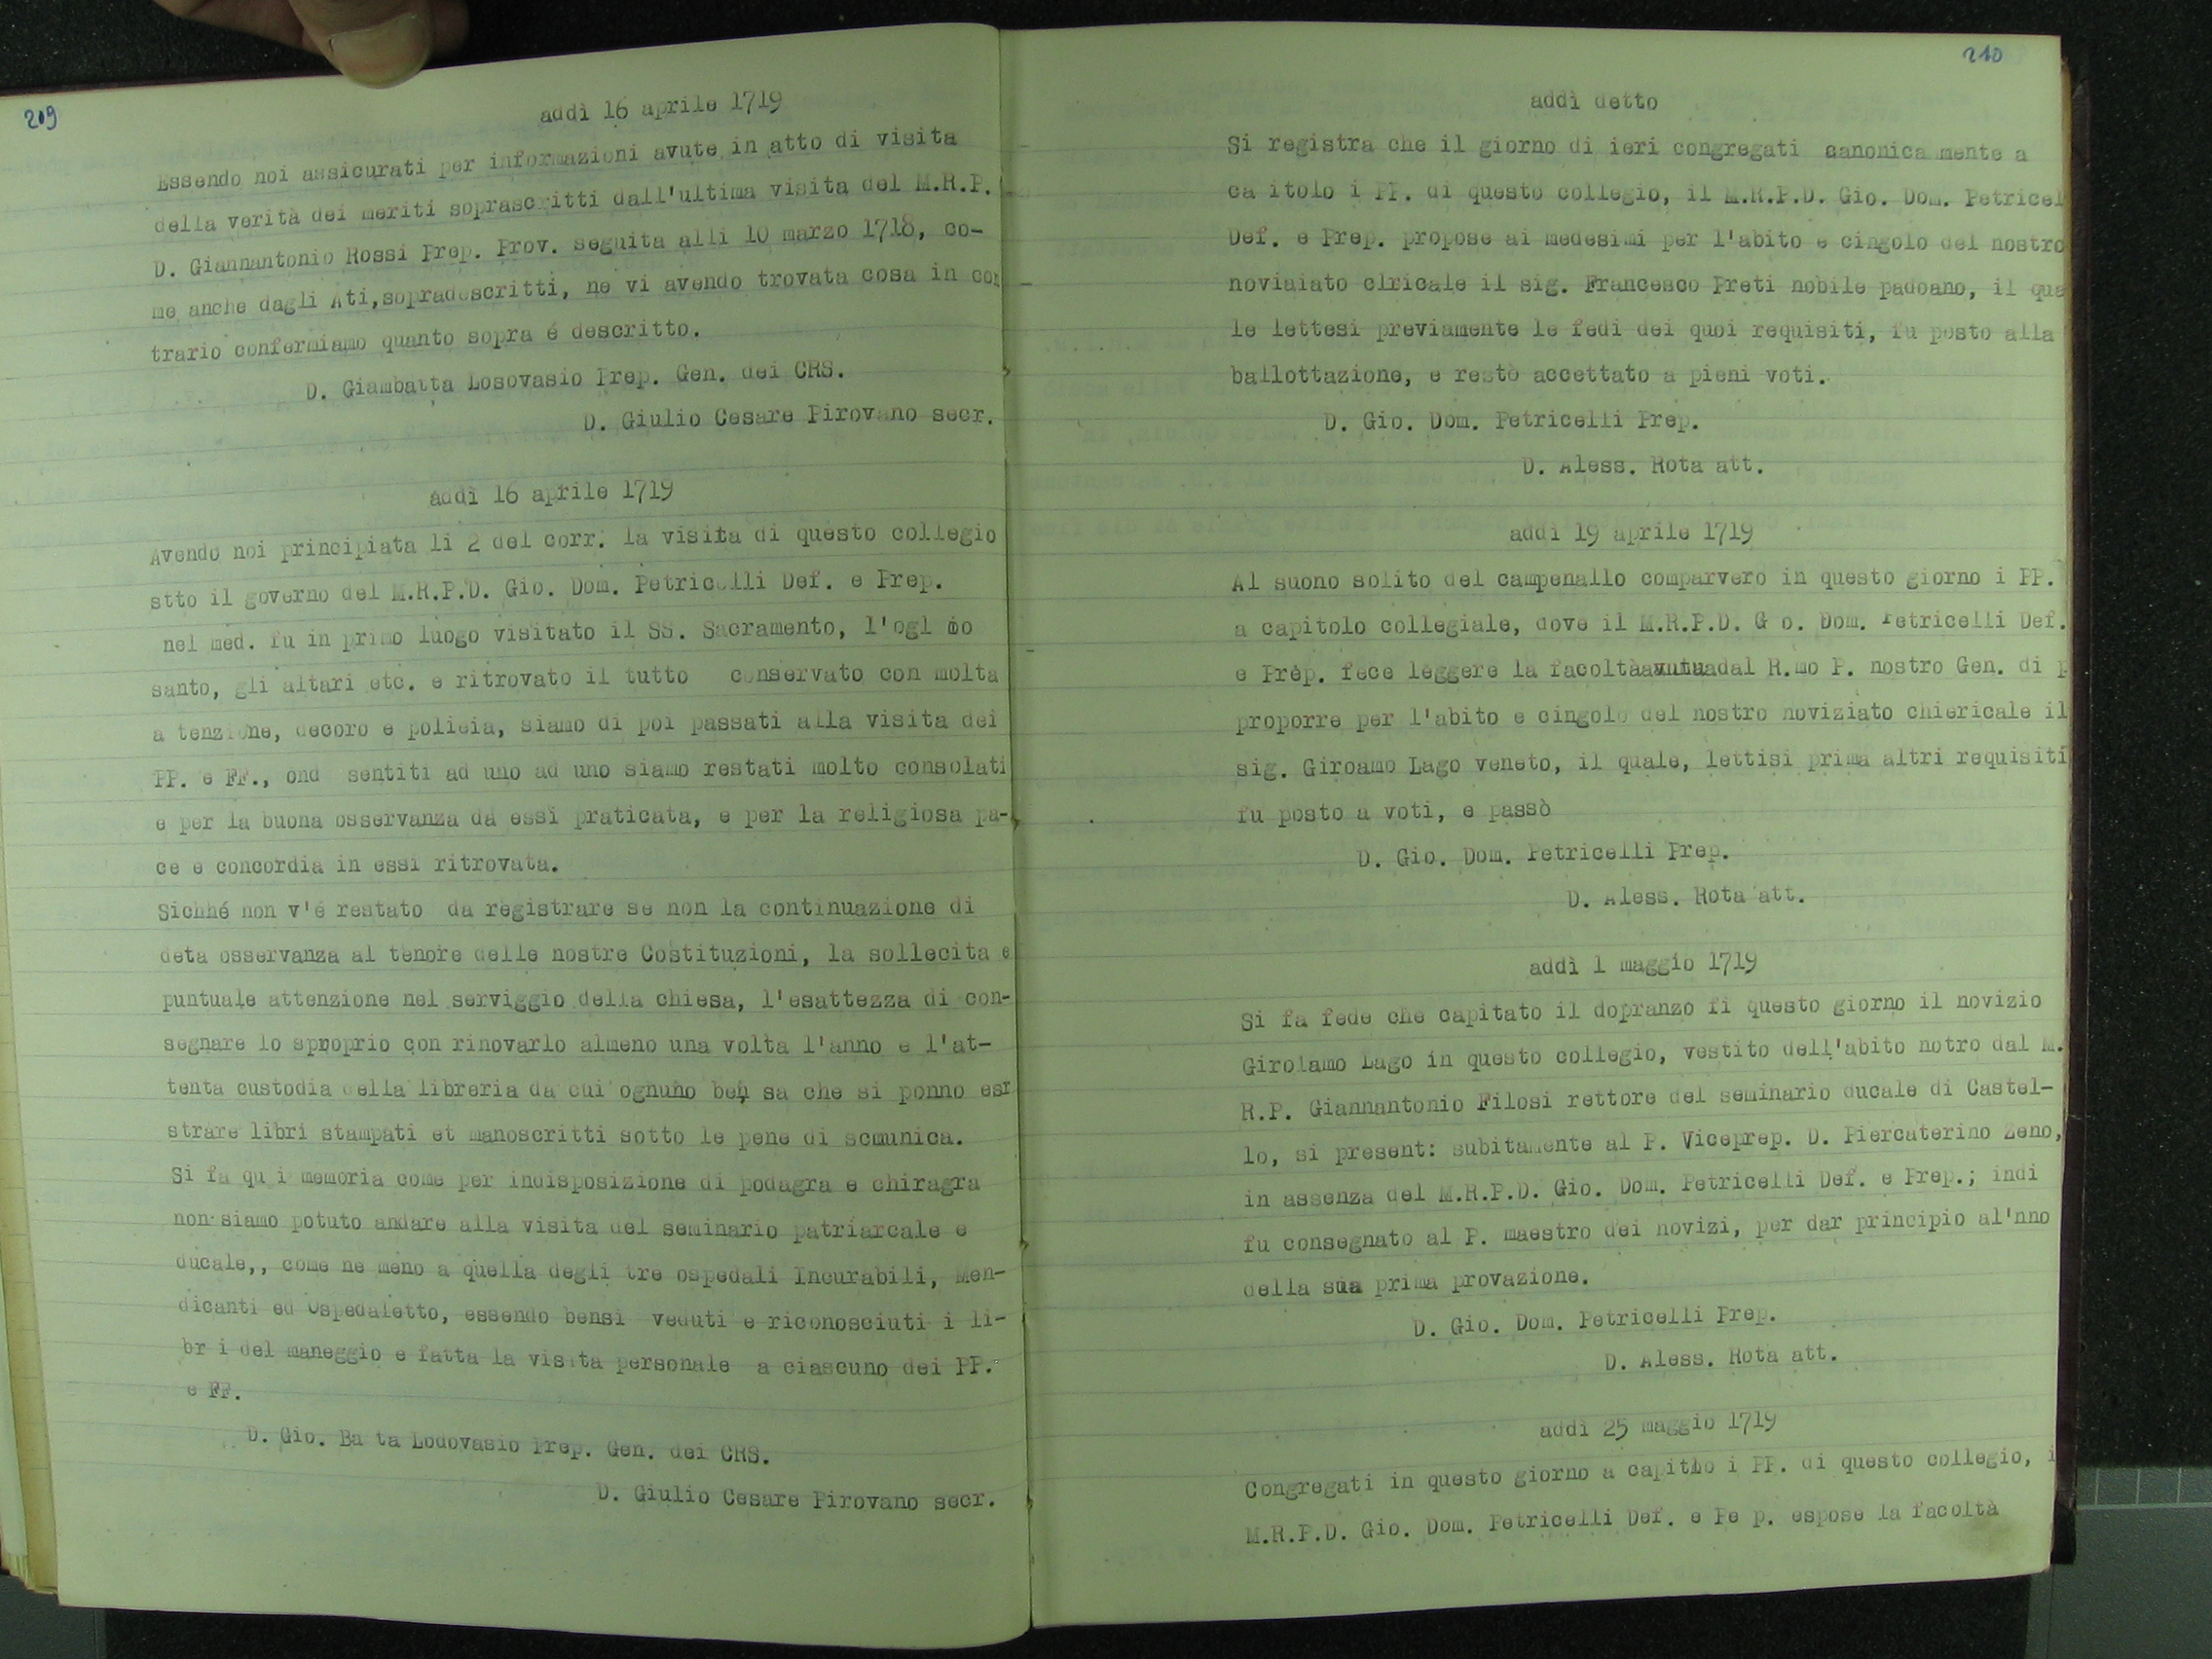 209
addì 16 aprile 1719
Essendo noi assicurati per informazioni avute in atto di visita
della verità dei meriti soprascritti dall'ultima visita del M.R.P.
D. Giannantonio Rossi Prep. Prov. seguita alli 10 marzo 1718, co-
me anche dagli Ati,sopradescritti, ne vi avendo trovata cosa in con
trario confermiamo quanto sopra é descritto.
D. Giambatta Losovasio Prep. Gen. dei CRS.
D. Giulio Cesare Pirovano secr.
addì 16 aprile 1719
Avendo noi principiata li 2 del corr. la visita di questo collegio
stto il governo del M.R.P.D. Gio. Dom. Petricelli Def. e Prep.
nel med. fu in primo luogo visitato il SS. Sacramento, l'ogl io
santo, gli altari etc. e ritrovato il tutto conservato con molta
a tenzione, decoro e poliaia, siamo di poi passati alla visita dei
PP. e FF., ond sentiti ad uno ad uno siamo restati molto consolati
e per la buona osservanza da essi praticata, e per la religiosa pa-
ce e concordia in essi ritrovata.
Sichhé non v'é restato da registrare se non la continuazione di
deta osservanza al tenore delle nostre Costituzioni, la sollecita e
puntuale attenzione nel serviggio della chiesa, l'esattezza di con-
segnare lo sproprio con rinovarlo almeno una volta l'anno e l'at-
tenta custodia della libreria da cui ognuno ben sa che si ponno esr
strare libri stampati et manoscritti sotto le pene di scmunica.
Si fa qu i memoria come per indisposizione di podagra e chiragra
non siamo potuto andare alla visita del seminario patriarcale e
ducale,, come ne meno a quella degli tre ospedali Incurabili, Men-
dicanti ed Ospedaletto, essendo bensi veduti e riconosciuti i li-
br i del maneggio e fatta la visita personale a ciascuno dei PP.
e FF.
D. Gio. Ba ta Lodovasio Prep. Gen. dei CRS.
D. Giulio Cesare Pirovano secr.
210
addì detto
Si registra che il giorno di ieri congregati canonica mente a
ca itolo i PP. di questo collegio, il M.R.P.D. Gio. Dom. Petricel
Def. e Prep. propose ai medesimi per l'abito e cingolo del nostro
noviaiato clricale il sig. Francesco Preti nobile padoano, il qua
le lettesi previamente le fedi dei quoi requisiti, fu posto alla
ballottazione, e restò accettato a pieni voti.
D. Gio. Dom. Petricelli Prep.
D. Aless. Rota att.
addì 19 aprile 1719
Al suono solito del campenallo comparvero in questo giorno i PP.
a capitolo collegiale, dove il M.R.P.D. G o. Dom. Petricelli Def.
e Prep. fece leggere la facoltàavutuadal R.mo P. nostro Gen. di p
proporre per l'abito e cingolo del nostro noviziato chiericale il
sig. Giroamo Lago veneto, il quale, lettisi prima altri requisiti
fu posto a voti, e passò
D. Gio. Dom. Petricelli Prep.
D. Aless. Rota att.
addì 1 maggio 1719
Si fa fede che capitato il dopranzo fi questo giorno il novizio
Girolamo Lago in questo collegio, vestito dell'abito notro dal M.
R.P. Giannantonio Filosi rettore del seminario ducale di Castel-
lo, si present: subitamente al P. Viceprep. D. Piercaterino Zeno,
in assenza del M.R.P.D. Gio. Dom. Petricelli Def. e Prep.; indi
fu consegnato al P. maestro dei novizi, per dar principio al'nno
della sua prima provazione.
D. Gio. Dom. Petricelli Prep.
D. Aless. Rota att.
addì 25 maggio 1719
Congregati in questo giorno a capitlo i PP. di questo collegio, i
M.R.P.D. Gio. Dom. Petricelli Def. e Pe p. espose la facoltà